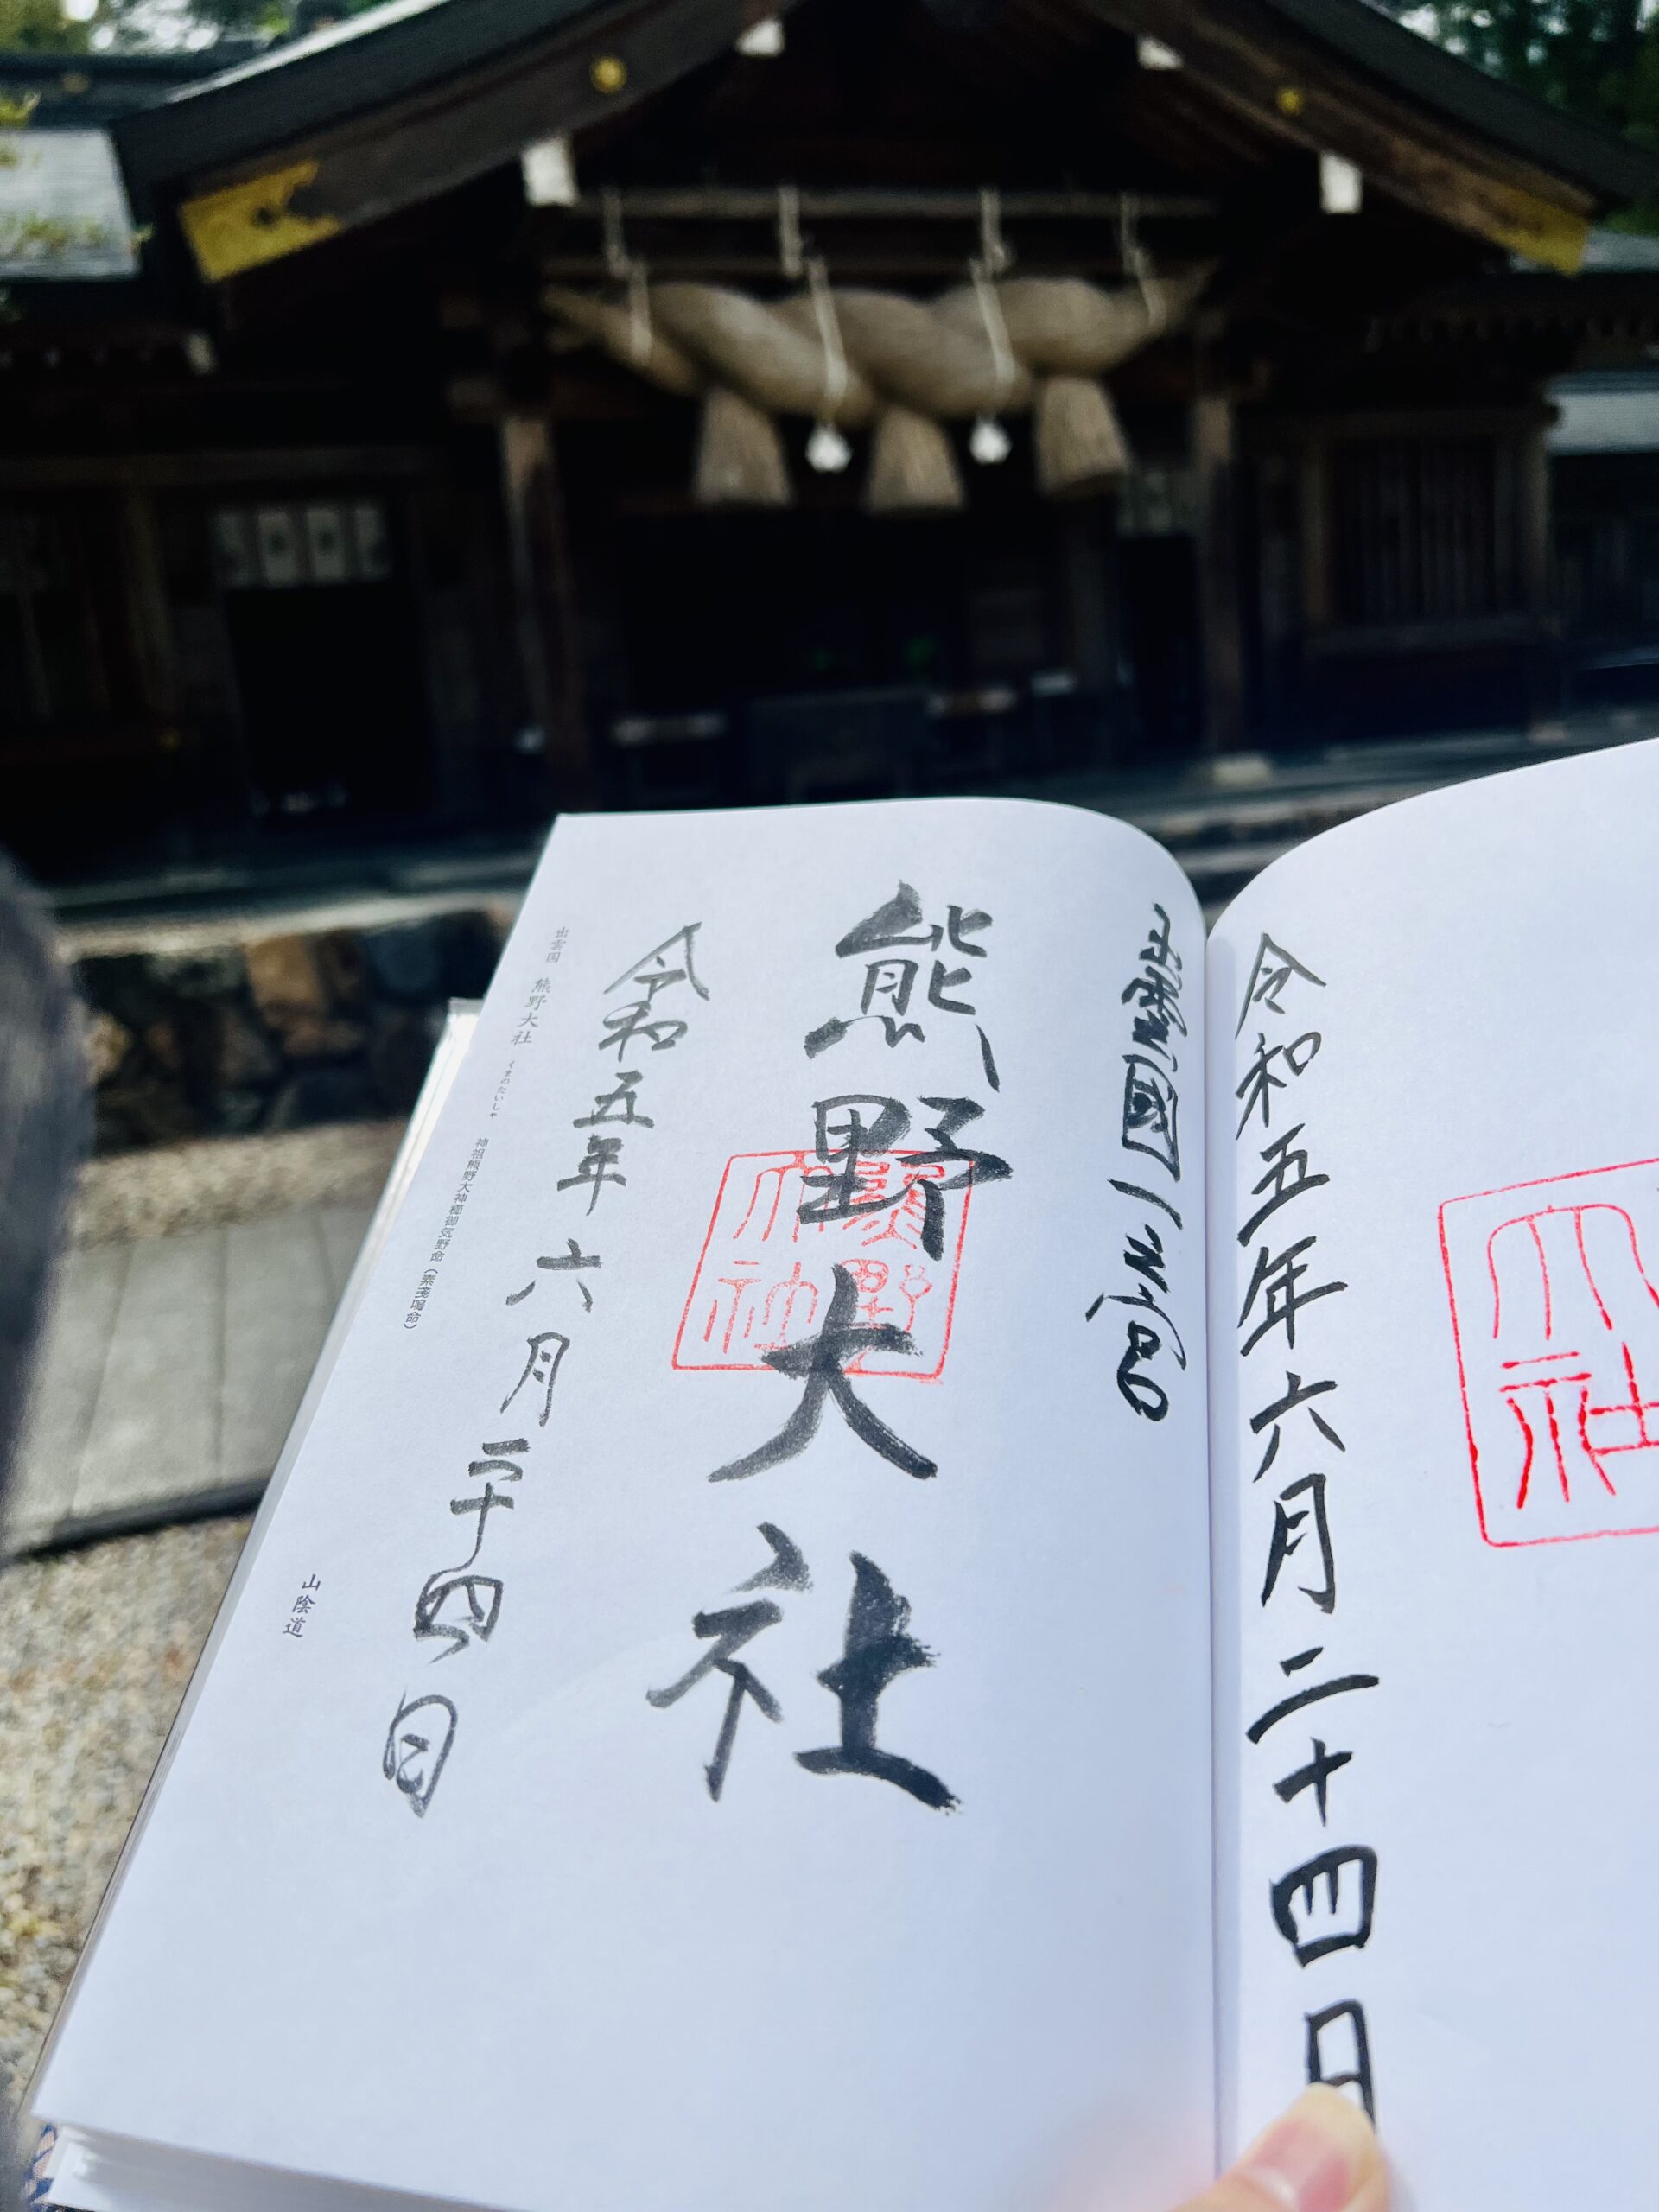 令和五年六月二十四日
大社
出雲國一之宮
熊野大社
熊野大社
令和五年六月二十四日
出雲国 熊野大社 くまのたいしゃ 神祖熊野大神櫛御気野命（素戔嗚命）
山陰道